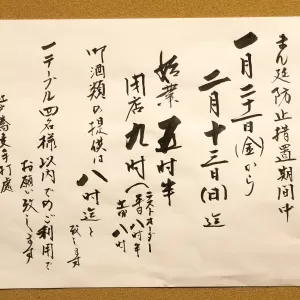 まん延防止措置期間中
一月二十一日(金)から
二月十三日(日)迄
始業五時半
閉店九時
(ラストオーダー
平日八時半
土日八時)
御酒類の提供は八時迄と
致します
一テーブル四名様以内でのご利用で
お願い致します